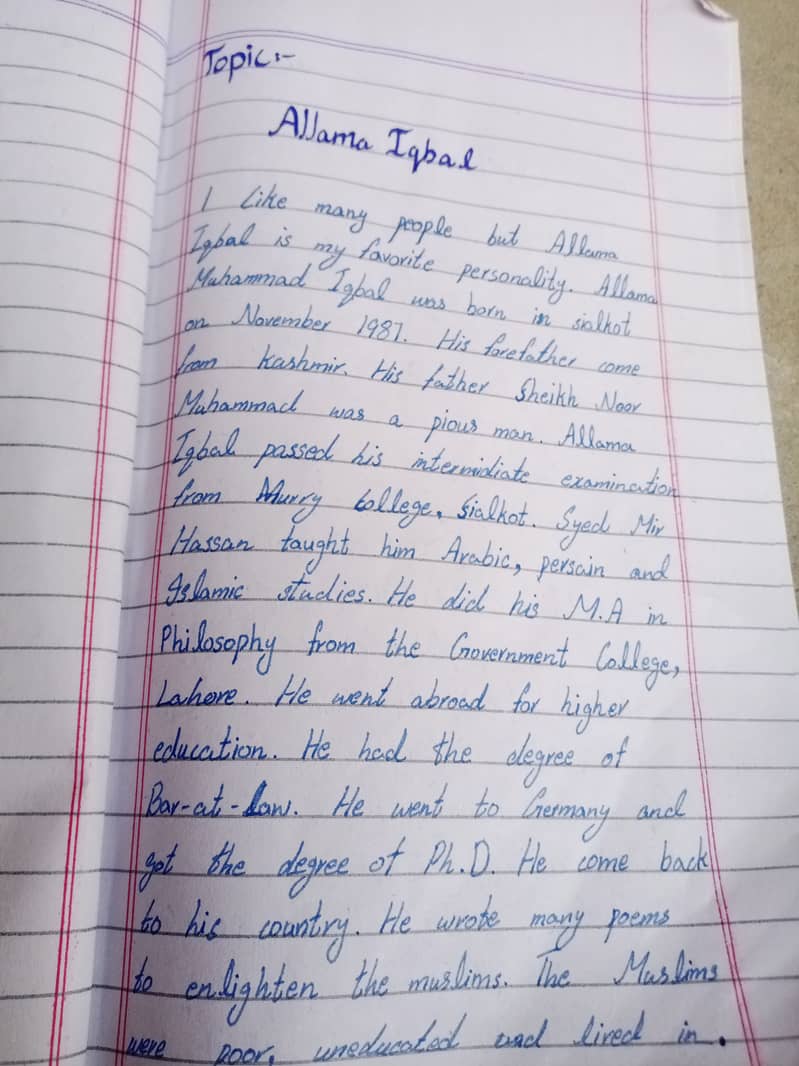 Topic:-
Allama Iqbal
I Like many people but Allama
Iqbal is my favorite personality. Allama
Muhammad Iqbal was born in sialkot
on November 1987. His forefather come
from Kashmir. His father Sheikh Noor
Muhammad was a pious man. Allama
Iqbal passed his intermidiate examination
from Murry College, Sialkot. Syed Mir
Hassan taught him Arabic, persain and
Islamic studies. He did his M.A in
Philosophy from the Government College,
Lahore. He went abroad for higher
education. He had the degree of
Bar-at-Law. He went to Germany and
got the degree of Ph.D. He come back
to his country. He wrote many poems
to enlighten the muslims. The Muslims
were poor, uneducated and lived in.